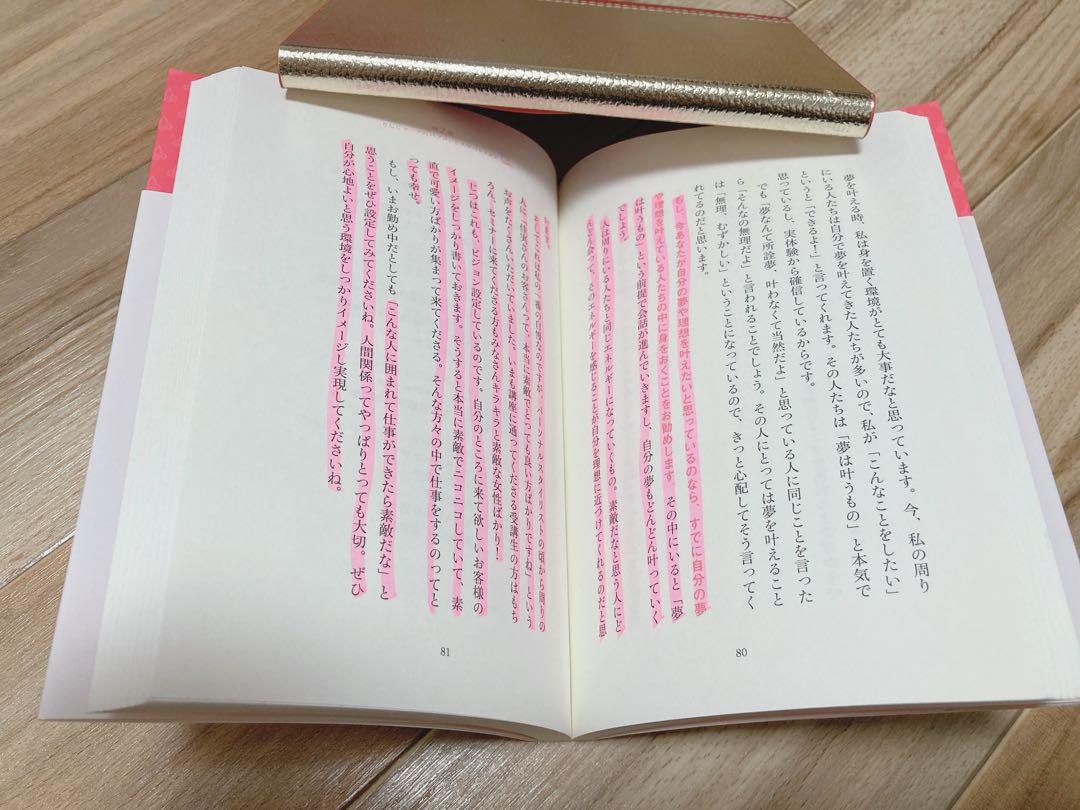 夢を叶える時、私は身を置く環境がとても大事だなと思っています。今、私の周り
にいる人たちは自分で夢を叶えてきた人たちが多いので、私が「こんなことをしたい」
というと「できるよ!」と言ってくれます。その人たちは「夢は叶うもの」と本気で
思っているし、実体験から確信しているからです。
でも「夢なんて所詮夢、叶わなくて当然だよ」と思っている人に同じことを言った
ら「そんなの無理だよ」と言われることでしょう。その人にとっては夢を叶えること
は「無理、むずかしい」ということになっているので、きっと心配してそう言ってく
れてるのだと思います。
もし、今あなたが自分の夢や理想を叶えたいと思っているのなら、すでに自分の夢
や理想を叶えている人たちの中に身をおくことをお勧めします。その中にいると「夢
は叶うもの」という前提で会話が進んでいきますし、自分の夢もどんどん叶っていく
でしょう。
人は周りにいる人たちと同じエネルギーになっていくもの。素敵だなと思う人にど
んどん会って、そのエネルギーを感じることが自分を理想に近づけてくれるのだと思
80
そしてこれは私の一番の自慢なのですが、パーソナルスタイリストの頃から周りの
人に「佳実さんのお客さんって、本当に素敵でとっても良い方ばかりですね」という
お声をたくさんいただいていました。いまも講座に通ってくださる受講生の方はもち
ろん、セミナーに来てくださる方もみなさんキラキラと素敵な女性ばかり!
じつはこれも、ビジョン設定しているのです。自分のところに来て欲しいお客様の
イメージをしっかり書いておきます。そうすると本当に素敵でニコニコしていて、素
直で可愛い方ばかりが集まって来てくださる。そんな方々の中で仕事をするのってと
っても幸せ。
もし、いまお勤め中だとしても「こんな人に囲まれて仕事ができたら素敵だな」と
思うことをぜひ設定してみてくださいね。人間関係ってやっぱりとっても大切。ぜひ
自分が心地よいと思う環境をしっかりイメージし実現してくださいね。
81